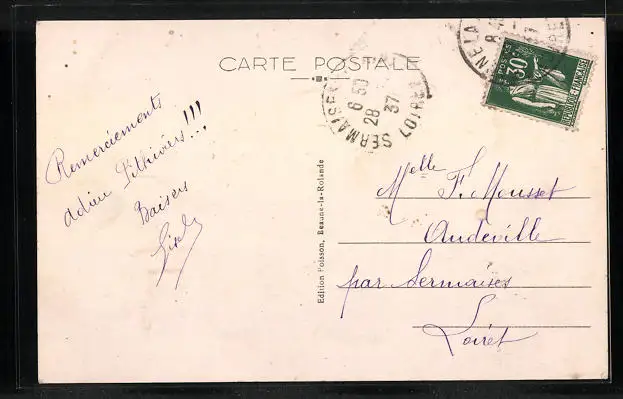 CARTE POSTALE
Remerciements
adieu Pithiviers!!!
Baisers
SERMAISES LOIRET
6 30
28
37
8 40
37
POSTES
30
REPUBLIQUE FRANÇAISE
Edition Poisson, Beaune-la-Rolande
Melle F. Mousset
Audeville
par Sermaises
Loiret